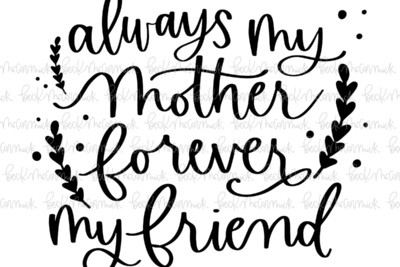 always my
mother
forever
my friend